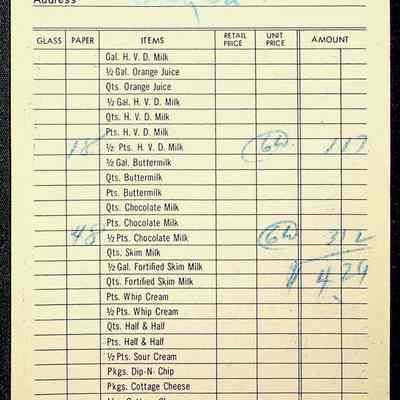 Address
GLASS PAPER ITEMS RETAIL PRICE UNIT PRICE AMOUNT
Gal. H. V. D. Milk
½ Gal. Orange Juice
Qts. Orange Juice
½ Gal. H. V. D. Milk
Qts. H. V. D. Milk
Pts. H. V. D. Milk
18 ½ Pts. H. V. D. Milk 6½ 117
½ Gal. Buttermilk
Qts. Buttermilk
Pts. Buttermilk
Qts. Chocolate Milk
Pts. Chocolate Milk
48 ½ Pts. Chocolate Milk 6½ 312
Qts. Skim Milk
½ Gal. Fortified Skim Milk $ 4 29
Qts. Fortified Skim Milk
Pts. Whip Cream
½ Pts. Whip Cream
Qts. Half & Half
Pts. Half & Half
½ Pts. Sour Cream
Pkgs. Dip-N- Chip
Pkgs. Cottage Cheese
Cottage Cheese